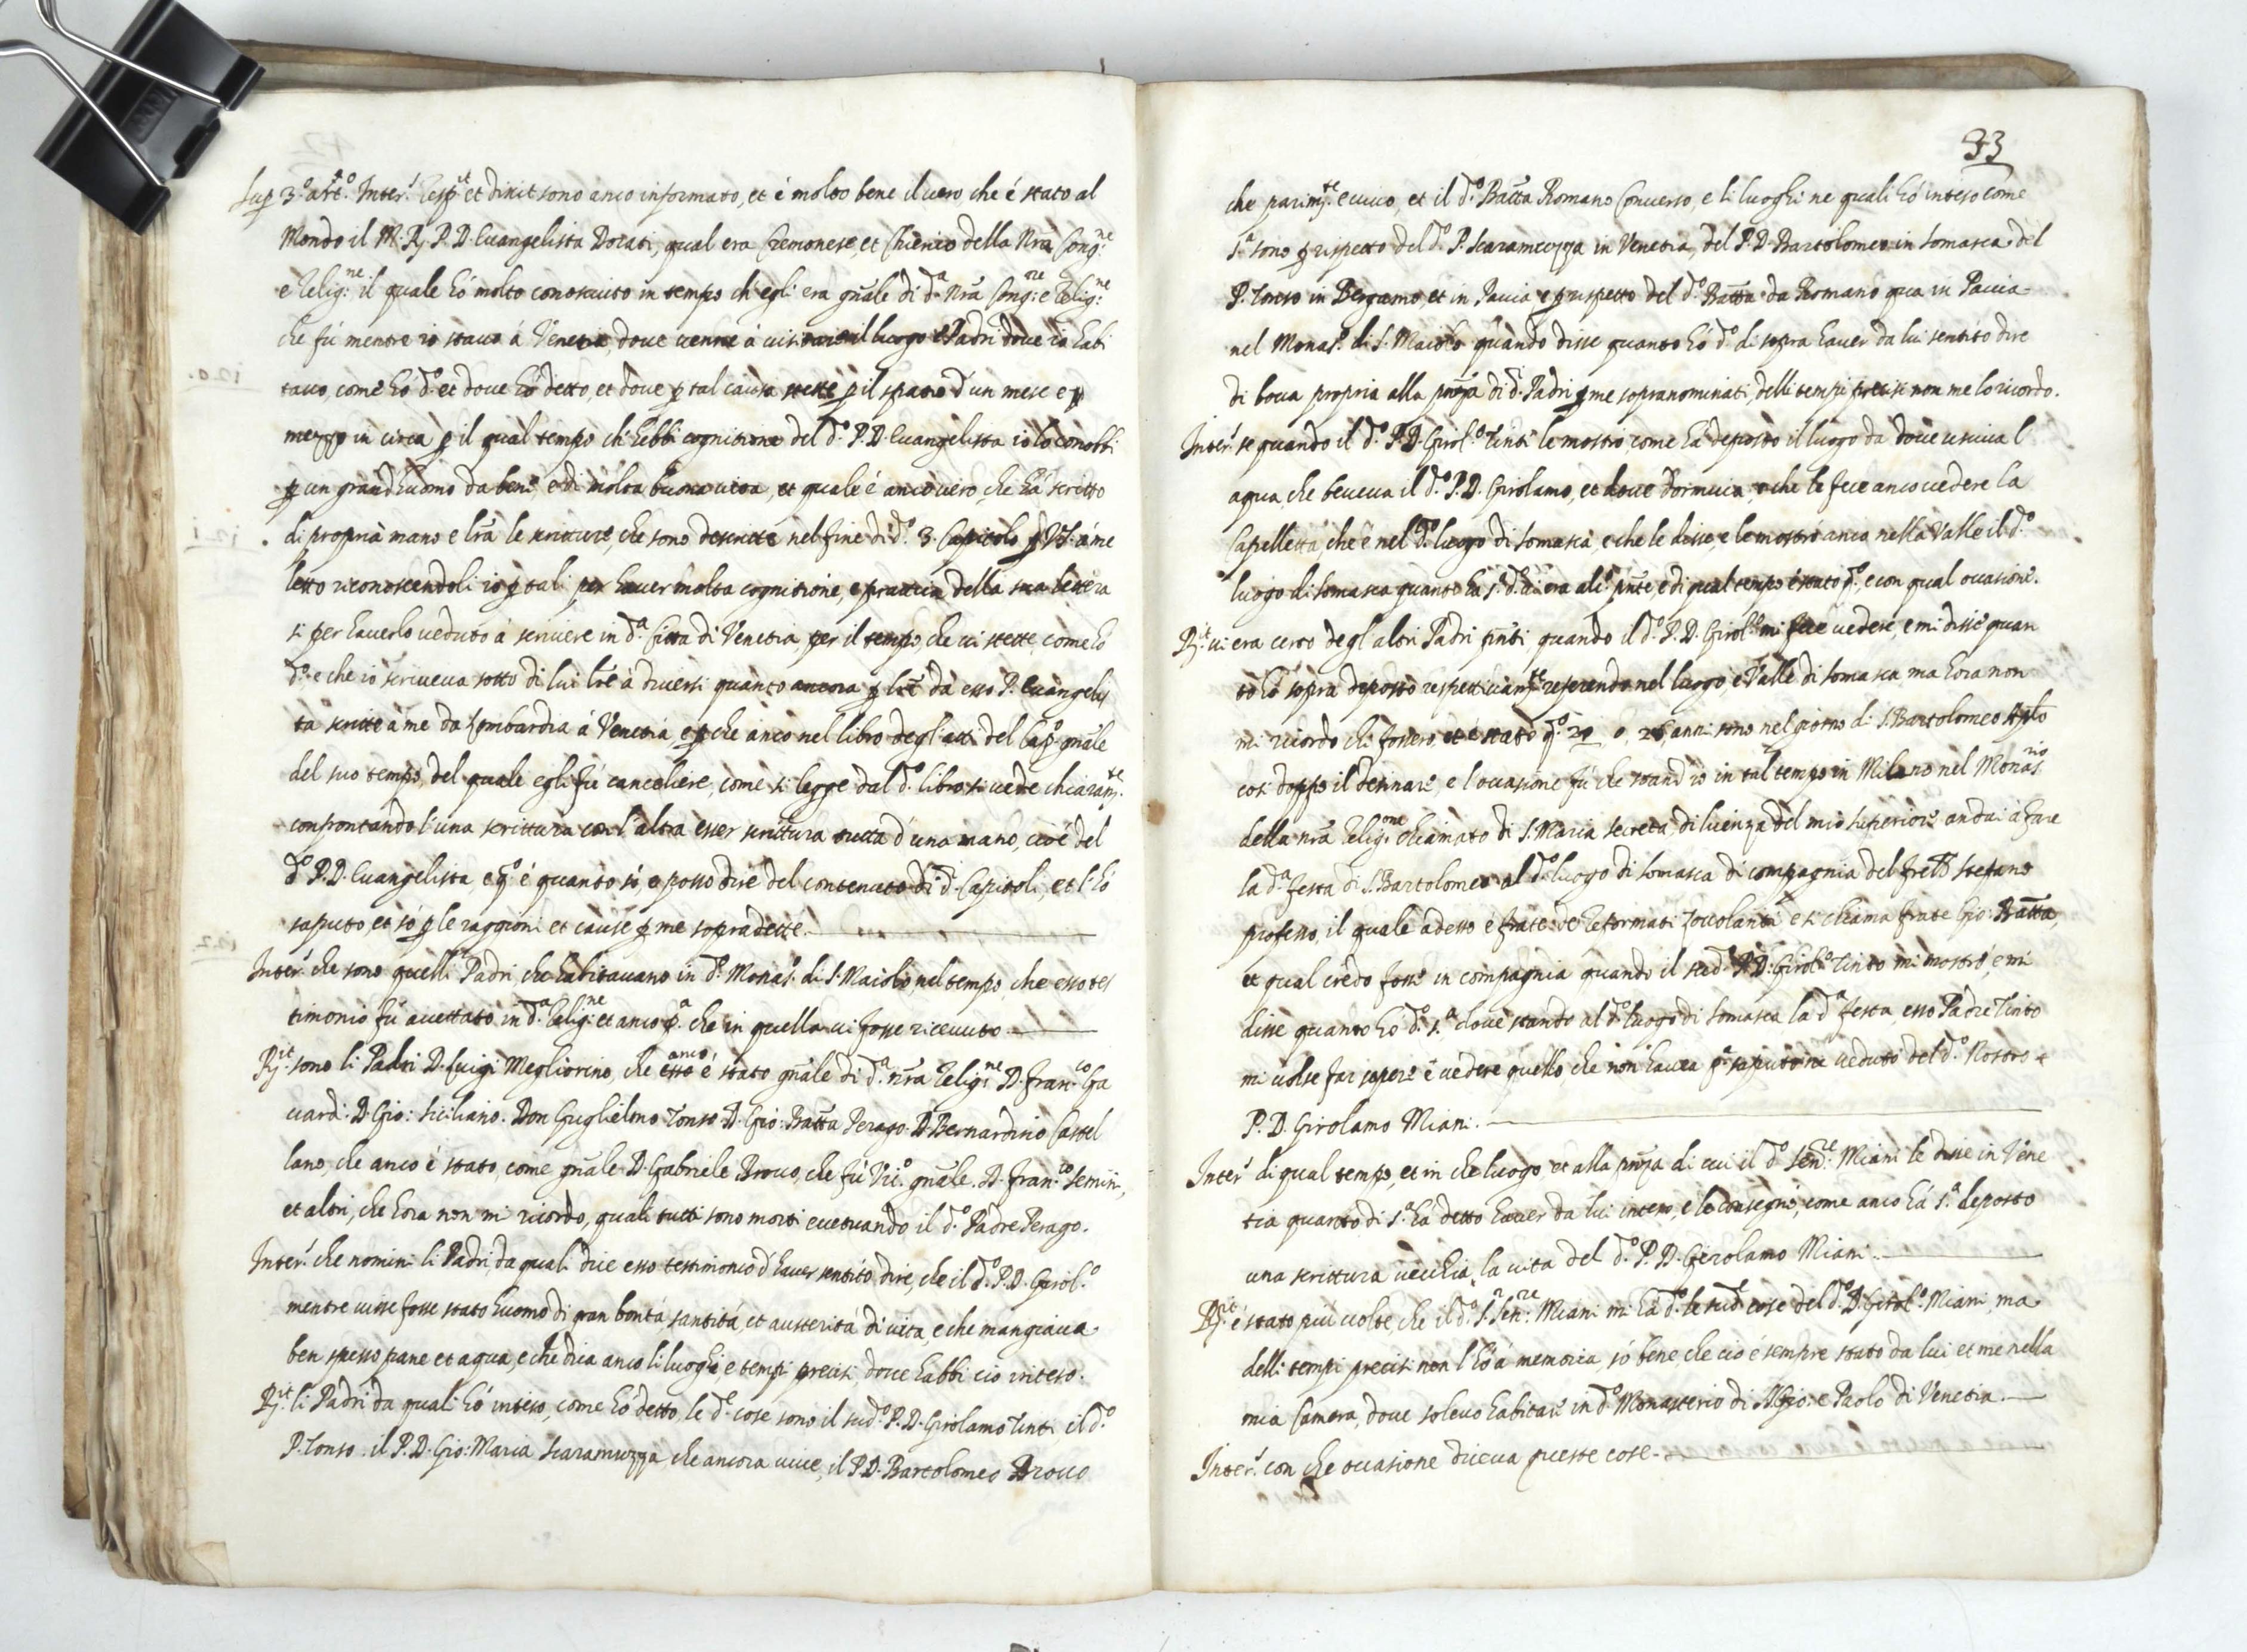 Sup 3.º art.º Inter.s resp.it et dixit sono anco informato, et é molto bene il vero che é stato al
Mondo il M. R. P. D. Evangelista Dorati, qual era Cremonese, et Chierico della Nrã Cong.ne
e Relig.ne il quale hó molto conosciuto in tempo ch' egli era gñale di d.ª Nrã Cong.ne e Relig.ne
che fú mentre io stava á Venetia, dove venne á visitare il luogo e Padri dove io habi
tavo, come hó d.º et dove hó detto, et dove p tal causa stette p il spatio d' un mese e
mezzo in circa p il qual tempo ch' hebbi cognitione del d.º P. D. Evangelista io lo conobbi
p un grand' huomo da bene e di molta buona vita, et quale é anco vero, che há scritto
di propria mano e lrã le scritture, che sono descritte nel fine di d.º 3. Capitolo p V.S. á me
letto riconoscendoli io p tali per haver molta cognitione, e prattica della sua lettera
si per haverlo veduto á scrivere in d.ª Città di Venetia per il tempo, che vi stette, come hó
d.º e che io scriveva sotto di lui lrẽ á diversi quanto ancora p lrẽ da esso P. Evangelis
ta scritte á me da Lombardia á Venetia, e p che anco nel libro degl' atti del Cap.º gñale
del suo tempo, del quale egli fú cancelliere, come si legge dal d.º libro si vede chiaram.te
confrontando l' una scrittura con l' altra esser scrittura tutta d' una mano, cioé del
d.º P. D. Evangelista, e q.º é quanto só, e posso dire del contenuto di d. Capitoli, et l' hó
saputo, et só p le raggioni et cause p me sopradette.
Inter.s che sono quelli Padri, che habitavano in d.º Monas.º di S. Maiolo, nel tempo, che esso tes
timonio fú accettato in d.ª Relig.ne et anco p.ª che in quella vi fosse ricevuto
R.it sono li Padri D. Luigi Megliorino, che esso anco é stato gñale di d.ª nrã Relig.ne D. Fran.co Ga
vardi. D. Gio: Siciliano. Don Guglielmo Tonso. D. Gio: Batta Perago. D. Bernardino Castel
lano, che anco é stato, come gñale. D. Gabriele Brocco, che fú Vic.º gñale. D. Fran.co
et altri, che hora non mi ricordo, quali tutti sono morti eccettuando il d.º Padre Perago.
Inter.s che nomini li Padri, da quali dice esso testimonio d' haver sentito dire, che il d.º P. D. Girol.º
mentre visse fosse stato huomo di gran bontá, santitá, et austeritá di vita, e che mangiava
ben spesso pane et aqua, e che dica anco li luoghi, e tempi precisi, dove habbi ció inteso.
R.it li Padri da quali hó inteso, come hó detto, le d.e cose sono il sud.º P. D. Girolamo Tinti il d.º
P. Tonso. il P. D. Gio: Maria Scaramuzza che ancora vive, il P. D. Bartolomeo Brocco
33
che parim.te é vivo, et il d.º Batta Romano Converso, e li luoghi ne quali hó inteso come
s.ª sono p rispetto del d.º P. Scaramuzza in Venetia, del P. D. Bartolomeo in Somasca del
P. Tonso in Bergamo, et in Pavia e p rispetto del d.º Batta da Romano qua in Pavia
nel Monas.º di S. Maiolo quando disse quanto hó d.º di sopra haver da lui sentito dire
di bocca propria alla pñza di d. Padri p me sopranominati, delli tempi precisi non me lo ricordo.
Inter.s se quando il d.º P. D. Girol.º Tinti le mostró, come há deposto il luogo da dove usciva l'
aqua, che beveva il d.º P. D. Girolamo, et dove dormiva, e che le fece anco vedere la
Capelletta, che é nel d.º luogo di Somasca, e che le disse, e le mostró anco nella Valle il d.º
luogo di Somasca quanto há s.ª d.º vi era alc.º pñte e di qual tempo é stato q.º, e con qual occasione.
R.it vi era certo degl' altri Padri pñti quando il d.º P. D. Girol.º mi fece vedere, e mi disse quan
to hó sopra deposto respettivam.te referendo nel luogo e Valle di Somasca, ma hora non
mi ricordo chi fossero, et é stato q.º 29 o, 26 anni sono nel giorno di S. Bartolomeo Aplo
cosi doppo il desinare, e l' occasione fú che stand' io in tal tempo in Milano nel Monas.rio
della nrã Relig.one chiamato di S. Maria secreta, di licenza del mio superiore andai á fare
la d.ª festa di S. Bartolomeo al d.º luogo di Somasca di compagnia del frẽllo Stefano
professo, il quale adesso é frate de Reformati Zoccolanti e si chiama frate Gio: Batta,
et qual credo fosse in compagnia quando il sud.º P. D. Girol.º Tinto mi mostró, e mi
disse quanto hó d.º s.ª dove stando al d.º luogo di Somasca la d.ª festa, esso Padre Tinto
mi volse far sapere e vedere quello, che non havea p.ª saputo ne veduto del d.º Nostro
P. D. Girolamo Miani.
Inter.s di qual tempo, et in che luogo, et alla pñza di cui il d.º Sen.re Miani le disse in Vene
tia quanto di s.ª há detto haver da lui inteso, e le consegnó, come anco há s.ª deposto
una scrittura vecchia, la vita del d.º P. D. Gerolamo Miani.
R.it é stato piú volte, che il d.º S.r Sen.re Miani mi há d.º le sud.e cose del d.º D. Girol.º Miani, ma
delli tempi precisi non l' hó á memoria, só bene, che ció é sempre stato da lui et me nella
mia Camera, dove solevo habitare in d.º Monasterio di S. Gio: e Paolo di Venetia.
Inter.s con che occasione diceva queste cose.